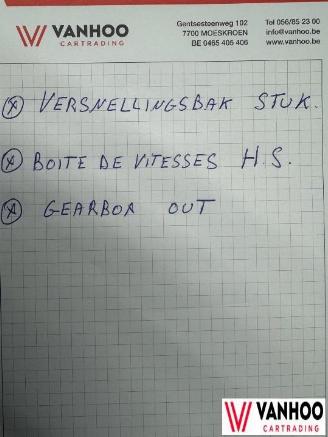 VANHOO
CARTRADING
Gentsesteenweg 102
7700 MOESKROEN
BE 0465 406 406
Tel 056/85 23 00
info@vanhoo.be
www.vanhoo.be
VERSNELLINGSBAK STUK.
BOITE DE VITESSES H.S.
GEARBOA OUT
VANHOO
CARTRADING